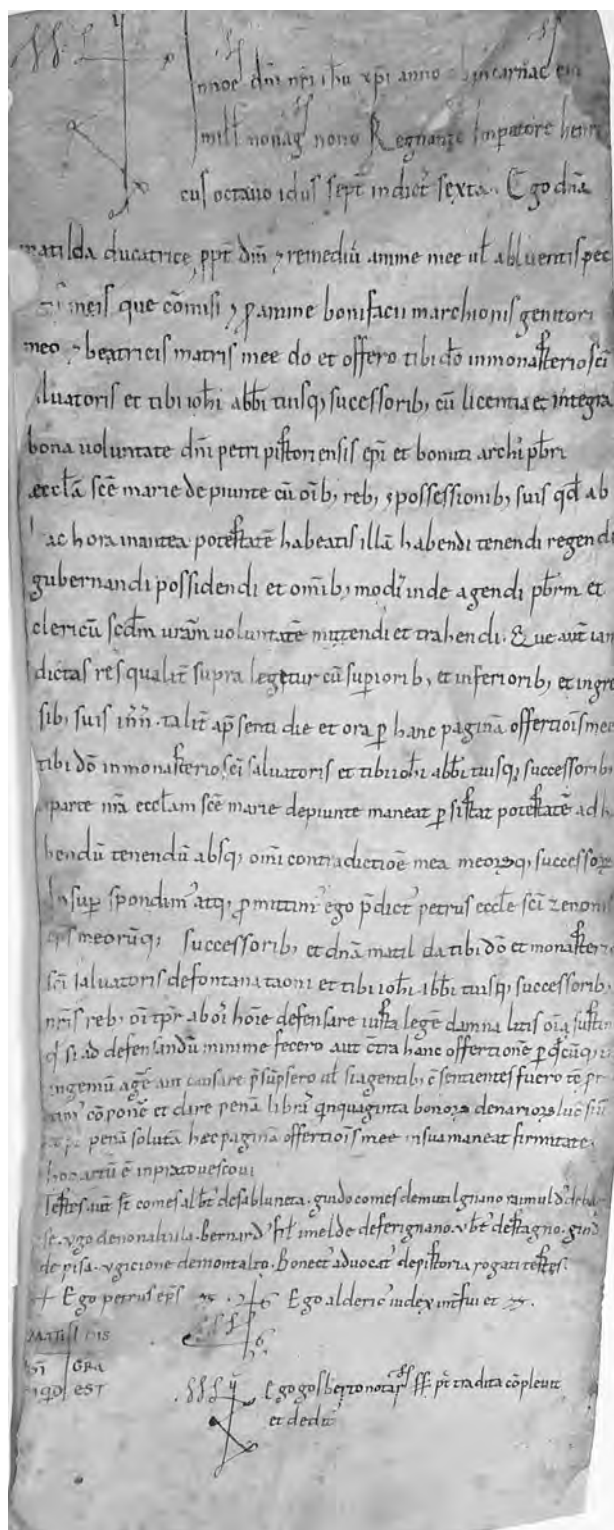 nnoe dni nri ihu xpi anno ab incarnac eiu
mill nonag nono Regnante Imperatore henri
cus octauo idus sept indict sexta. Ego dna
matilda ducatrice, ppt dm ⁊ remediu amme mee ul abluentis pec
meis que comisi ⁊ p anime bonifacii marchionis genitori
meo ⁊ beatricis matris mee do et offero tibi do in monasterio sci
aluatoris et tibi iohi abbi tuisq; successorib; cu licentia et integra
bona uoluntate dni petri pistoriensis epi et bonuti archi pbri
eccla sce marie de piunte cu oib; reb; ⁊ possessionib; suis qd ab
ac hora in antea potestate habeatis illa habendi tenendi regendi
gubernandi possidendi et omib; modi inde agendi pbrm et
clericu scdm uram uoluntate mittendi et trahendi. Que aut iam
dictas res qualit supra legetur cu superiorib; et inferiorib; et ingre
sib; suis in n. talit a psenti die et ora p hanc pagina offertiois mee
tibi do in monasterio sci saluatoris et tibi iohi abbi tuisq; successorib;
aparte nra ecclam sce marie de piunte maneat p sistat potestate ad h
bendu tenendu absq; omi contradictioe mea meorq; successor
Insup spondim atq; p mittim ego pdict petrus eccle sci zenonis
eps meoruq; successorib; et dna matilda tibi do et monasterio
sci saluatoris de fontana taoni et tibi iohi abbi tuisq; successorib;
nris reb; oi tpr ab oi hoie defensare iusta lege damna litis oia sustin
q si ad defensandu minime fecero aut ctra hanc offertione p qcuq;
ingeniu age aut causare psupsero ul si agentib; csentientes fuero te pr
co pone et dare pena libr qnquaginta bonor denarior luc
pena soluta hec pagina offertiois mee in sua maneat firmitate.
hoc actu e in prato uescoui
Testes aut st comes albt de sabluneta. guido comes de mutilgnano raimuld de ba
se. ugo de nonahula. bernard fil imelde de ferignano. ubt de stagno. guid
de pisa. ugicione de montalto. Bonect aduocat de pistoria rogati testes.
+ Ego petrus eps ss. Ego alderic iudex intfui et ss.
MATILDIS
DI GRA
SI QD EST
Ego gosberto notar ss. pt tradita copleui
et dedi